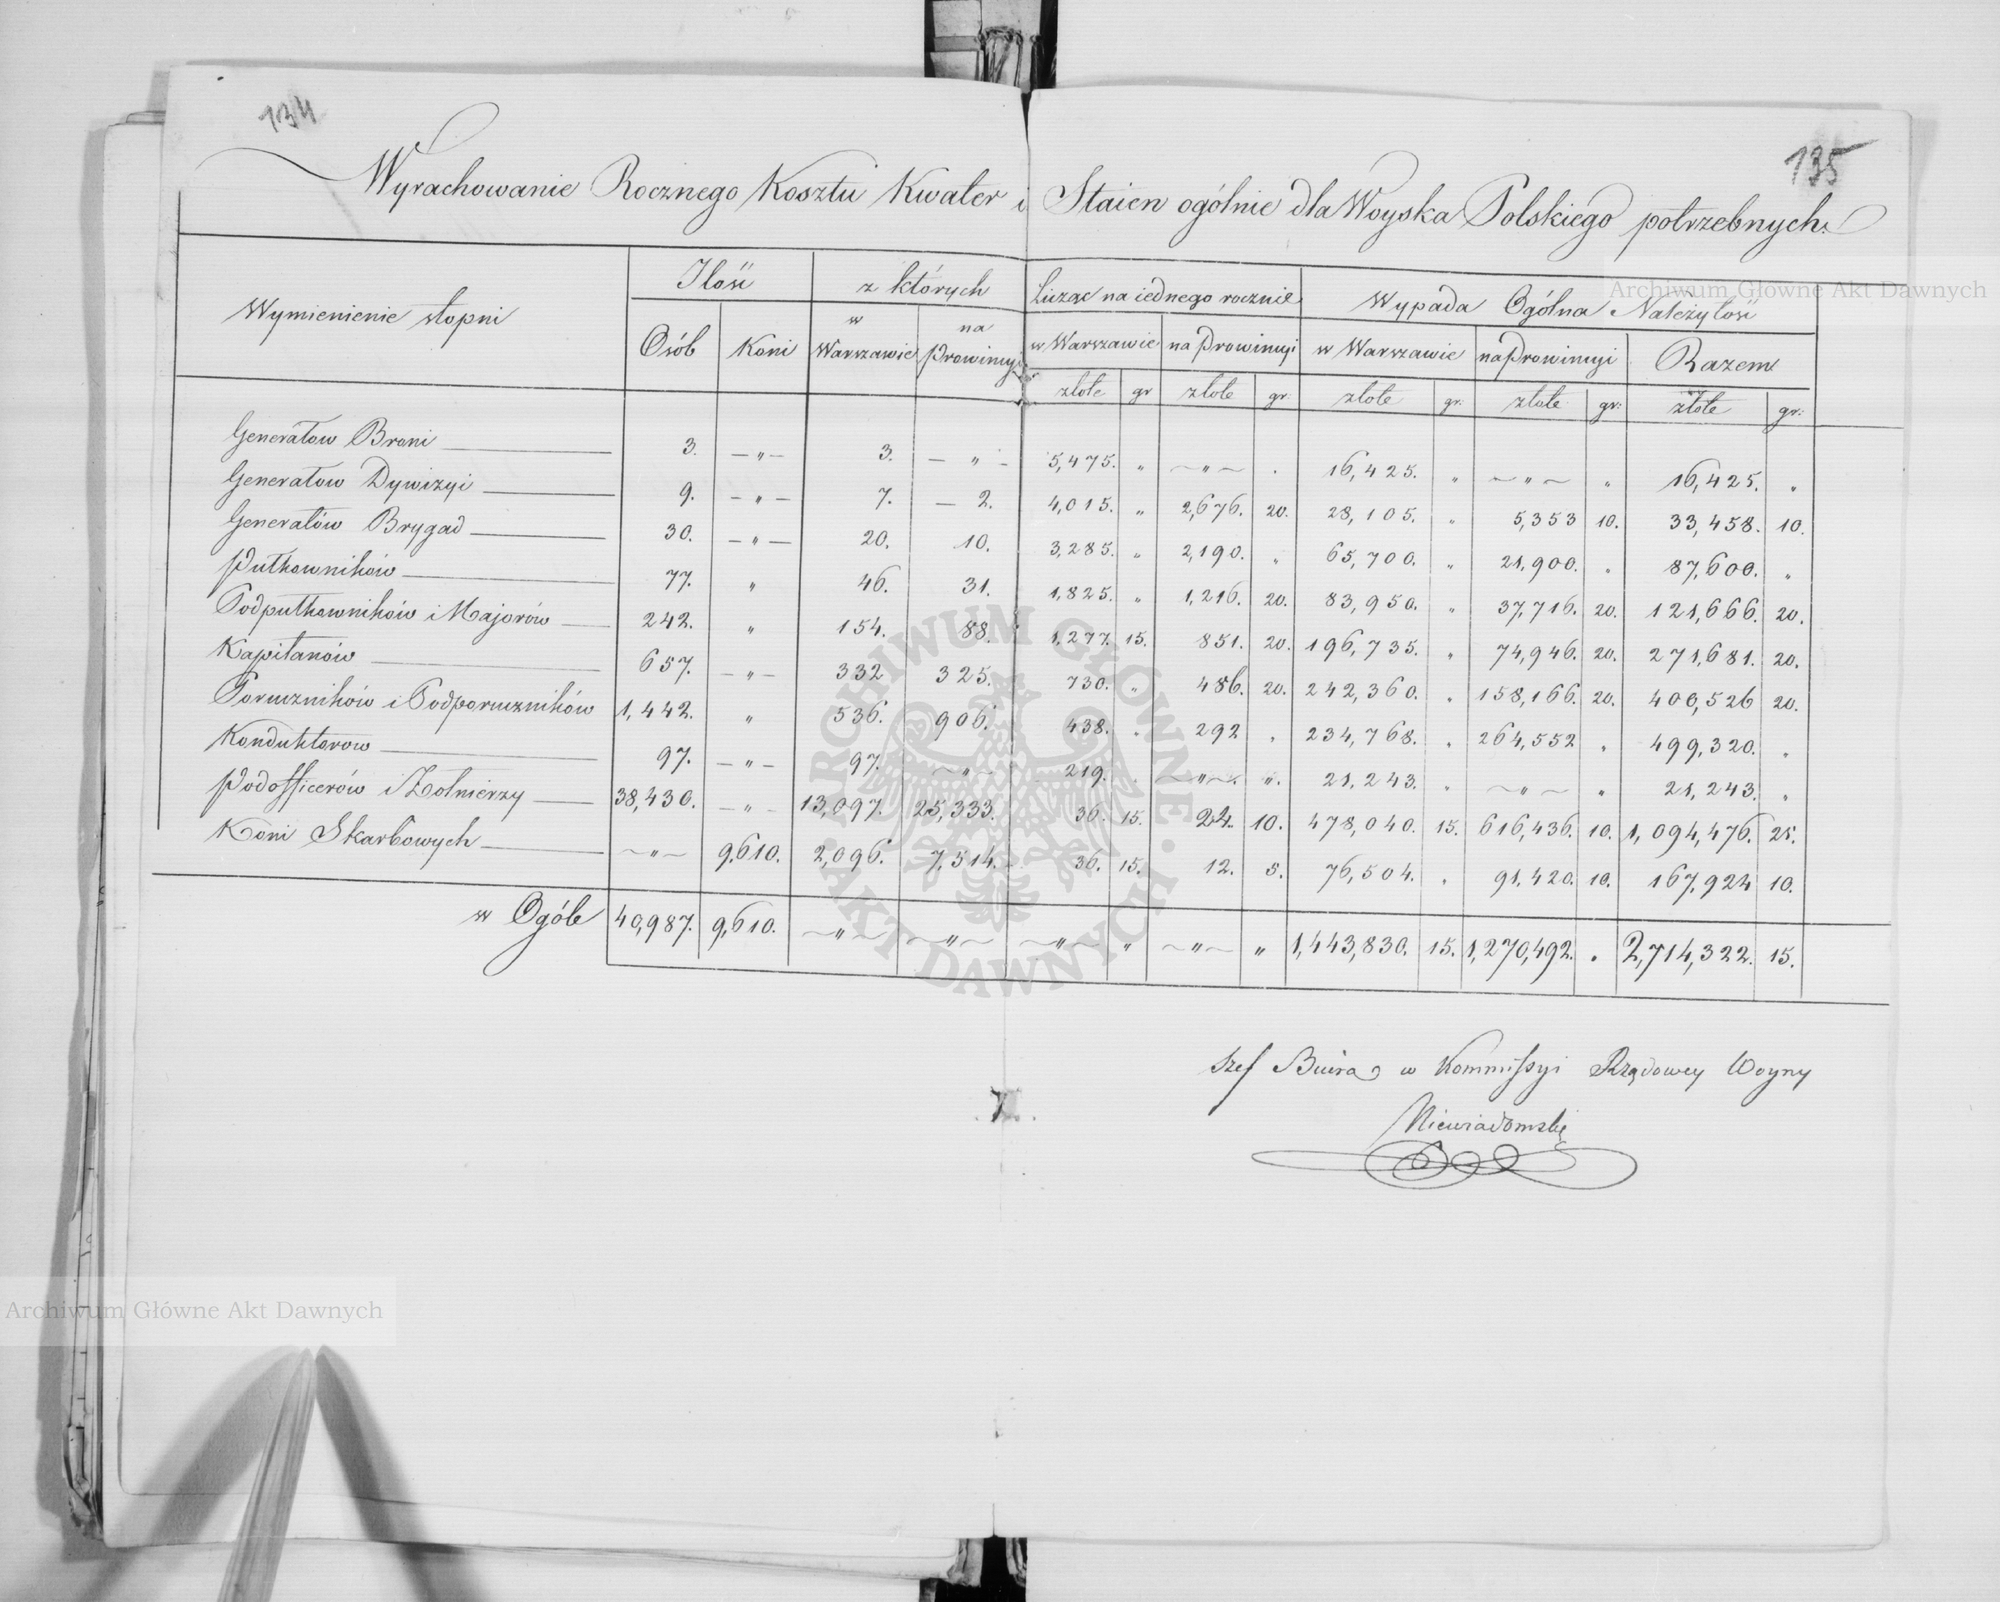 134
135
Wyrachowanie Rocznego Kosztu Kwater i Staien ogólnie dla Woyska Polskiego potrzebnych.
Wymienienie stopni | Ilość | z których | Licząc na iednego rocznie | Wypada Ogólna Należytość
Osób | Koni | w Warszawie | na Prowincyi | w Warszawie | na Prowincyi | w Warszawie | na Prowincyi | Razem
złote | gr | złote | gr: | złote | gr: | złote | gr: | złote | gr:
Generałow Broni | 3. | — " — | 3. | — " — | 5,475. | " | — " — | . | 16,425. | " | — " — | " | 16,425. | "
Generałow Dywizyi | 9. | — " — | 7. | — 2. | 4,015. | " | 2,676. | 20. | 28,105. | " | 5,353 | 10. | 33,458. | 10.
Generałów Brygad | 30. | — " — | 20. | 10. | 3,285. | " | 2,190. | " | 65,700. | " | 21,900. | " | 87,600. | "
Pułkowników | 77. | " | 46. | 31. | 1,825. | " | 1,216. | 20. | 83,950. | " | 37,716. | 20. | 121,666. | 20.
Podpułkowników i Majorów | 242. | " | 154. | 88. | 1,277. | 15. | 851. | 20. | 196,735. | " | 74,946. | 20. | 271,681. | 20.
Kapitanów | 657. | — " — | 332 | 325. | 730. | " | 486. | 20. | 242,360. | " | 158,166. | 20. | 400,526 | 20.
Poruczników i Podporuczników | 1,442. | " | 536. | 906. | 438. | " | 292 | " | 234,768. | " | 264,552 | " | 499,320. | "
Konduktorow | 97. | — " — | 97. | — " — | 219. | " | — " —. | ". | 21,243. | " | — " — | " | 21,243. | "
Podofficerów i Żołnierzy | 38,430. | — " — | 13,097. | 25,333. | 36. | 15. | 24. | 10. | 478,040. | 15. | 616,436. | 10. | 1,094,476. | 25.
Koni Skarbowych | — " — | 9,610. | 2,096. | 7,514. | 36. | 15. | 12. | 5. | 76,504. | " | 91,420. | 10. | 167,924 | 10.
w Ogóle | 40,987. | 9,610. | — " — | — " — | — " — | " | — " — | " | 1,443,830. | 15. | 1,270,492. | " | 2,714,322. | 15.
Szef Biura w Kommissyi Rządowey Woyny
Niewiadomski
Archiwum Główne Akt Dawnych
Archiwum Główne Akt Dawnych
ARCHIWUM GŁÓWNE · AKT DAWNYCH ·